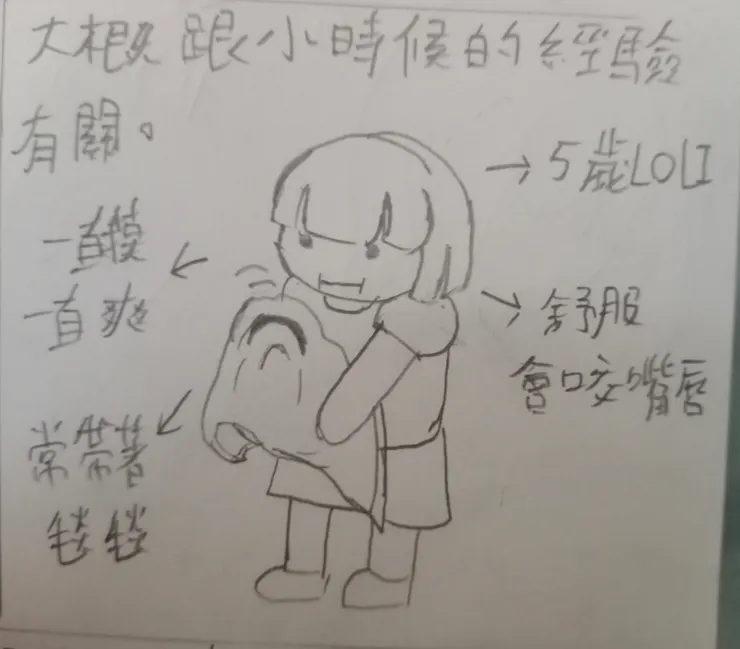 大概跟小時候的經驗
有關。
5歲LOLI
一直摸
一直爽
舒服
會咬嘴唇
常帶著
毯毯